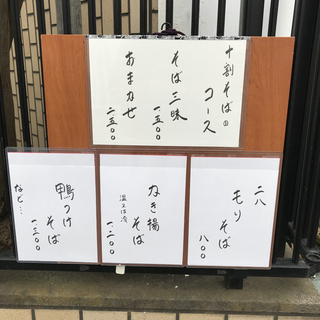 十割そばのコース
そば三昧
一.五〇〇
おまかせ
二.五〇〇
二八
もりそば
八〇〇
ねぎ揚そば
温又は冷
一.二〇〇
鴨つけそば
一.三〇〇
など…